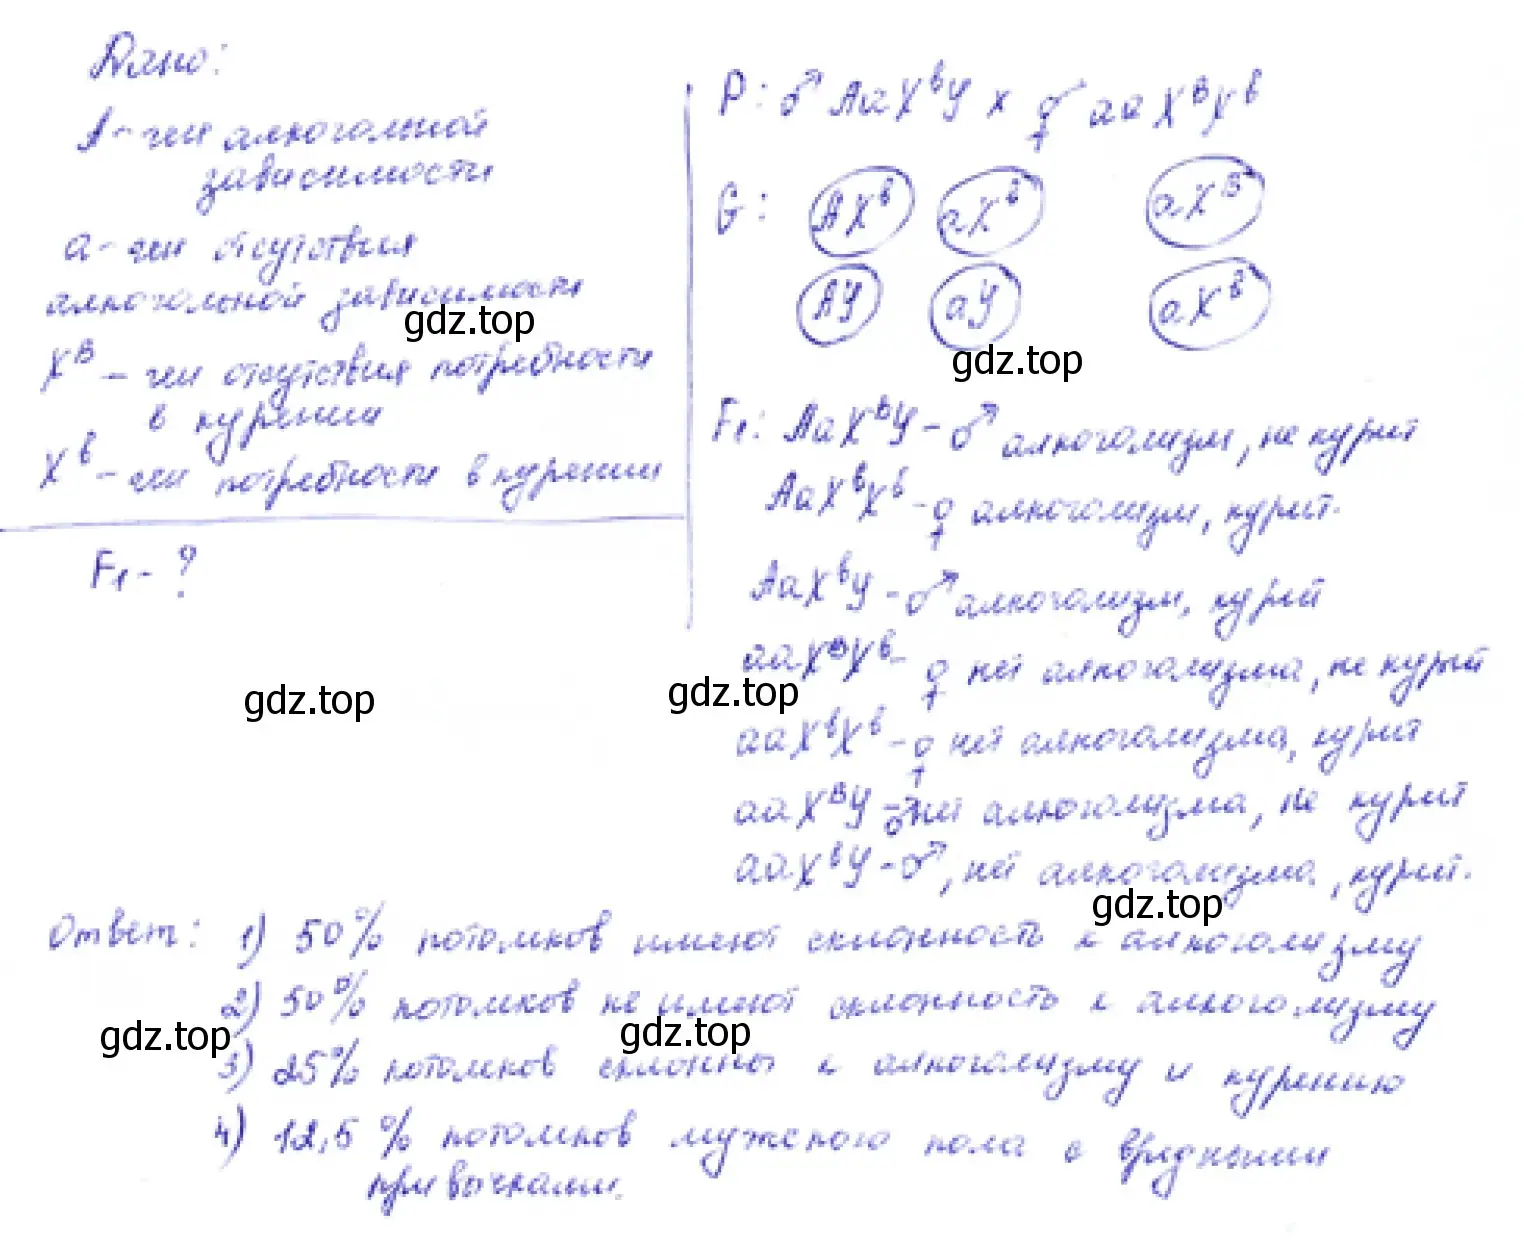 Дано:
A - ген алкогольной
зависимости
a - ген отсутствия
алкогольной зависимости
gdz.top
X^B - ген отсутствия потребности
в курении
X^b - ген потребности в курении
F₁ - ?
P: ♂ AaX^bY × ♀ aaX^BX^b
G: AX^b aX^b aX^B
AY aY aX^b
gdz.top
F₁: AaX^BY - ♂ алкоголизм, не курит
AaX^bX^b - ♀ алкоголизм, курит.
AaX^bY - ♂ алкоголизм, курит
aaX^BX^b - ♀ нет алкоголизма, не курит
gdz.top
gdz.top
aaX^bX^b - ♀ нет алкоголизма, курит
aaX^BY - ♂ нет алкоголизма, не курит
aaX^bY - ♂, нет алкоголизма, курит.
gdz.top
Ответ: 1) 50% потомков имеют склонность к алкоголизму
2) 50% потомков не имеют склонность к алкоголизму
gdz.top
gdz.top
3) 25% потомков склонны к алкоголизму и курению
4) 12,5% потомков мужского пола с вредными
привычками.